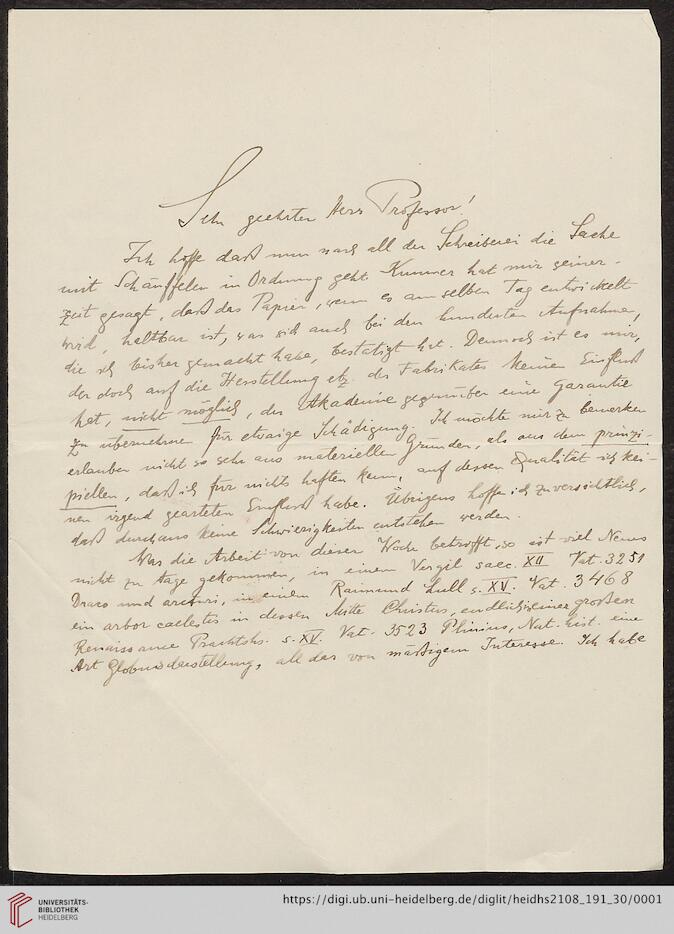 Sehr geehrter Herr Professor!
Ich hoffe daß nun nach all der Schreiberei die Sache
mit Schäuffelen in Ordnung geht. Kummer hat mir seiner-
zeit gesagt, daß das Papier, wenn es am selben Tag entwickelt
wird, haltbar ist, was sich auch bei den hunderten Aufnahmen,
die ich bisher gemacht habe, bestätigt hat. Dennoch ist es mir,
der doch auf die Herstellung etz. des Fabrikates keinen Einfluß
hat, nicht möglich, der Akademie gegenüber eine Garantie
zu übernehmen für etwaige Schädigung. Ich möchte mir zu bemerken
erlauben nicht so sehr aus materiellen Gründen, als aus dem prinzi-
piellen, daß ich für nichts haften kann, auf dessen Qualität ich kei-
nen irgend gearteten Einfluß habe. Übrigens hoffe ich zuversichtlich,
daß durchaus keine Schwierigkeiten entstehen werden.
Was die Arbeit von dieser Woche betrifft, so ist viel Neues
nicht zu Tage gekommen, in einem Vergil saec. XII Vat. 3251
Draco und arcturi, in einem Raimund Lull s. XV. Vat. 3468
ein arbor caelestis in dessen Mitte Christus, endlich in einer großen
Renaissance Prachths. s. XV. Vat. 3523 Plinius, Nat. hist. eine
Art Globusdarstellung, all das von mäßigem Interesse. Ich habe
UNIVERSITÄTS-
BIBLIOTHEK
HEIDELBERG
https://digi.ub.uni-heidelberg.de/diglit/heidhs2108_191_30/0001